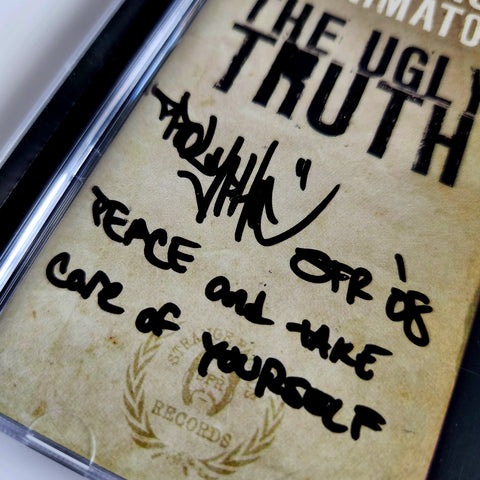 THE UGLY
TRUTH
SFR '08
PEACE and take
Care of YOURSELF
STRANGE
RECORDS